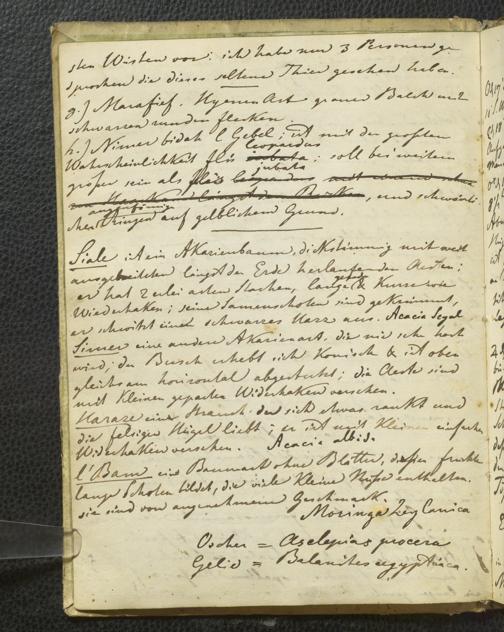 sten Wüsten vor; ich habe nur 3 Personen ge
sprochen die dieses seltene Thier gesehen haben.
g.) Marafief. Hyenen Art grauer Balch mit
schwarzen runden flecken.
h.) Nimer bidah l'Gebel; ist mit der grosten
leopardus
Wahrscheinlichkeit felis jubata; soll bei weitem
jubata
groser sein als felis leopardus
und schwärtz
chen Ringen auf gelblichem Grund.
Siale ist ein Akazienbaum, dickstämmig mit weit
ausgebreiteten längst der Erde herlaufenden Aesten;
er hat 2 erlei arten Stachen, lange & Kurze wie
Wiederhaken; seine Samenschoten sind gekrümmt,
er schwitzt ein schwarzes Harz aus. Acacia Seyal
Simer eine andere Akazienart, die nie sehr hoch
wird; der Busch erhebt sich Konisch & ist oben
gleichsam horizontal abgestuckt; die Aeste sind
mit kleinen gepaarten Widerhaken versehen.
Haraze eine Strauch der sich etwas rankt und
die felsigen Hügel liebt; er ist mit Kleinen einfachen
Widerhaken versehen. Acacia albida.
l'Bam ein Baumart ohne Blätter, dessen fruchte
lange Schoten bildet, die viele Kleine Nüsse enthalten.
sie sind von angenehmem Geschmack.
Moringa Zeylanica
Oscher = Asclepias procera
Gelio = Balanites egyptiaca.